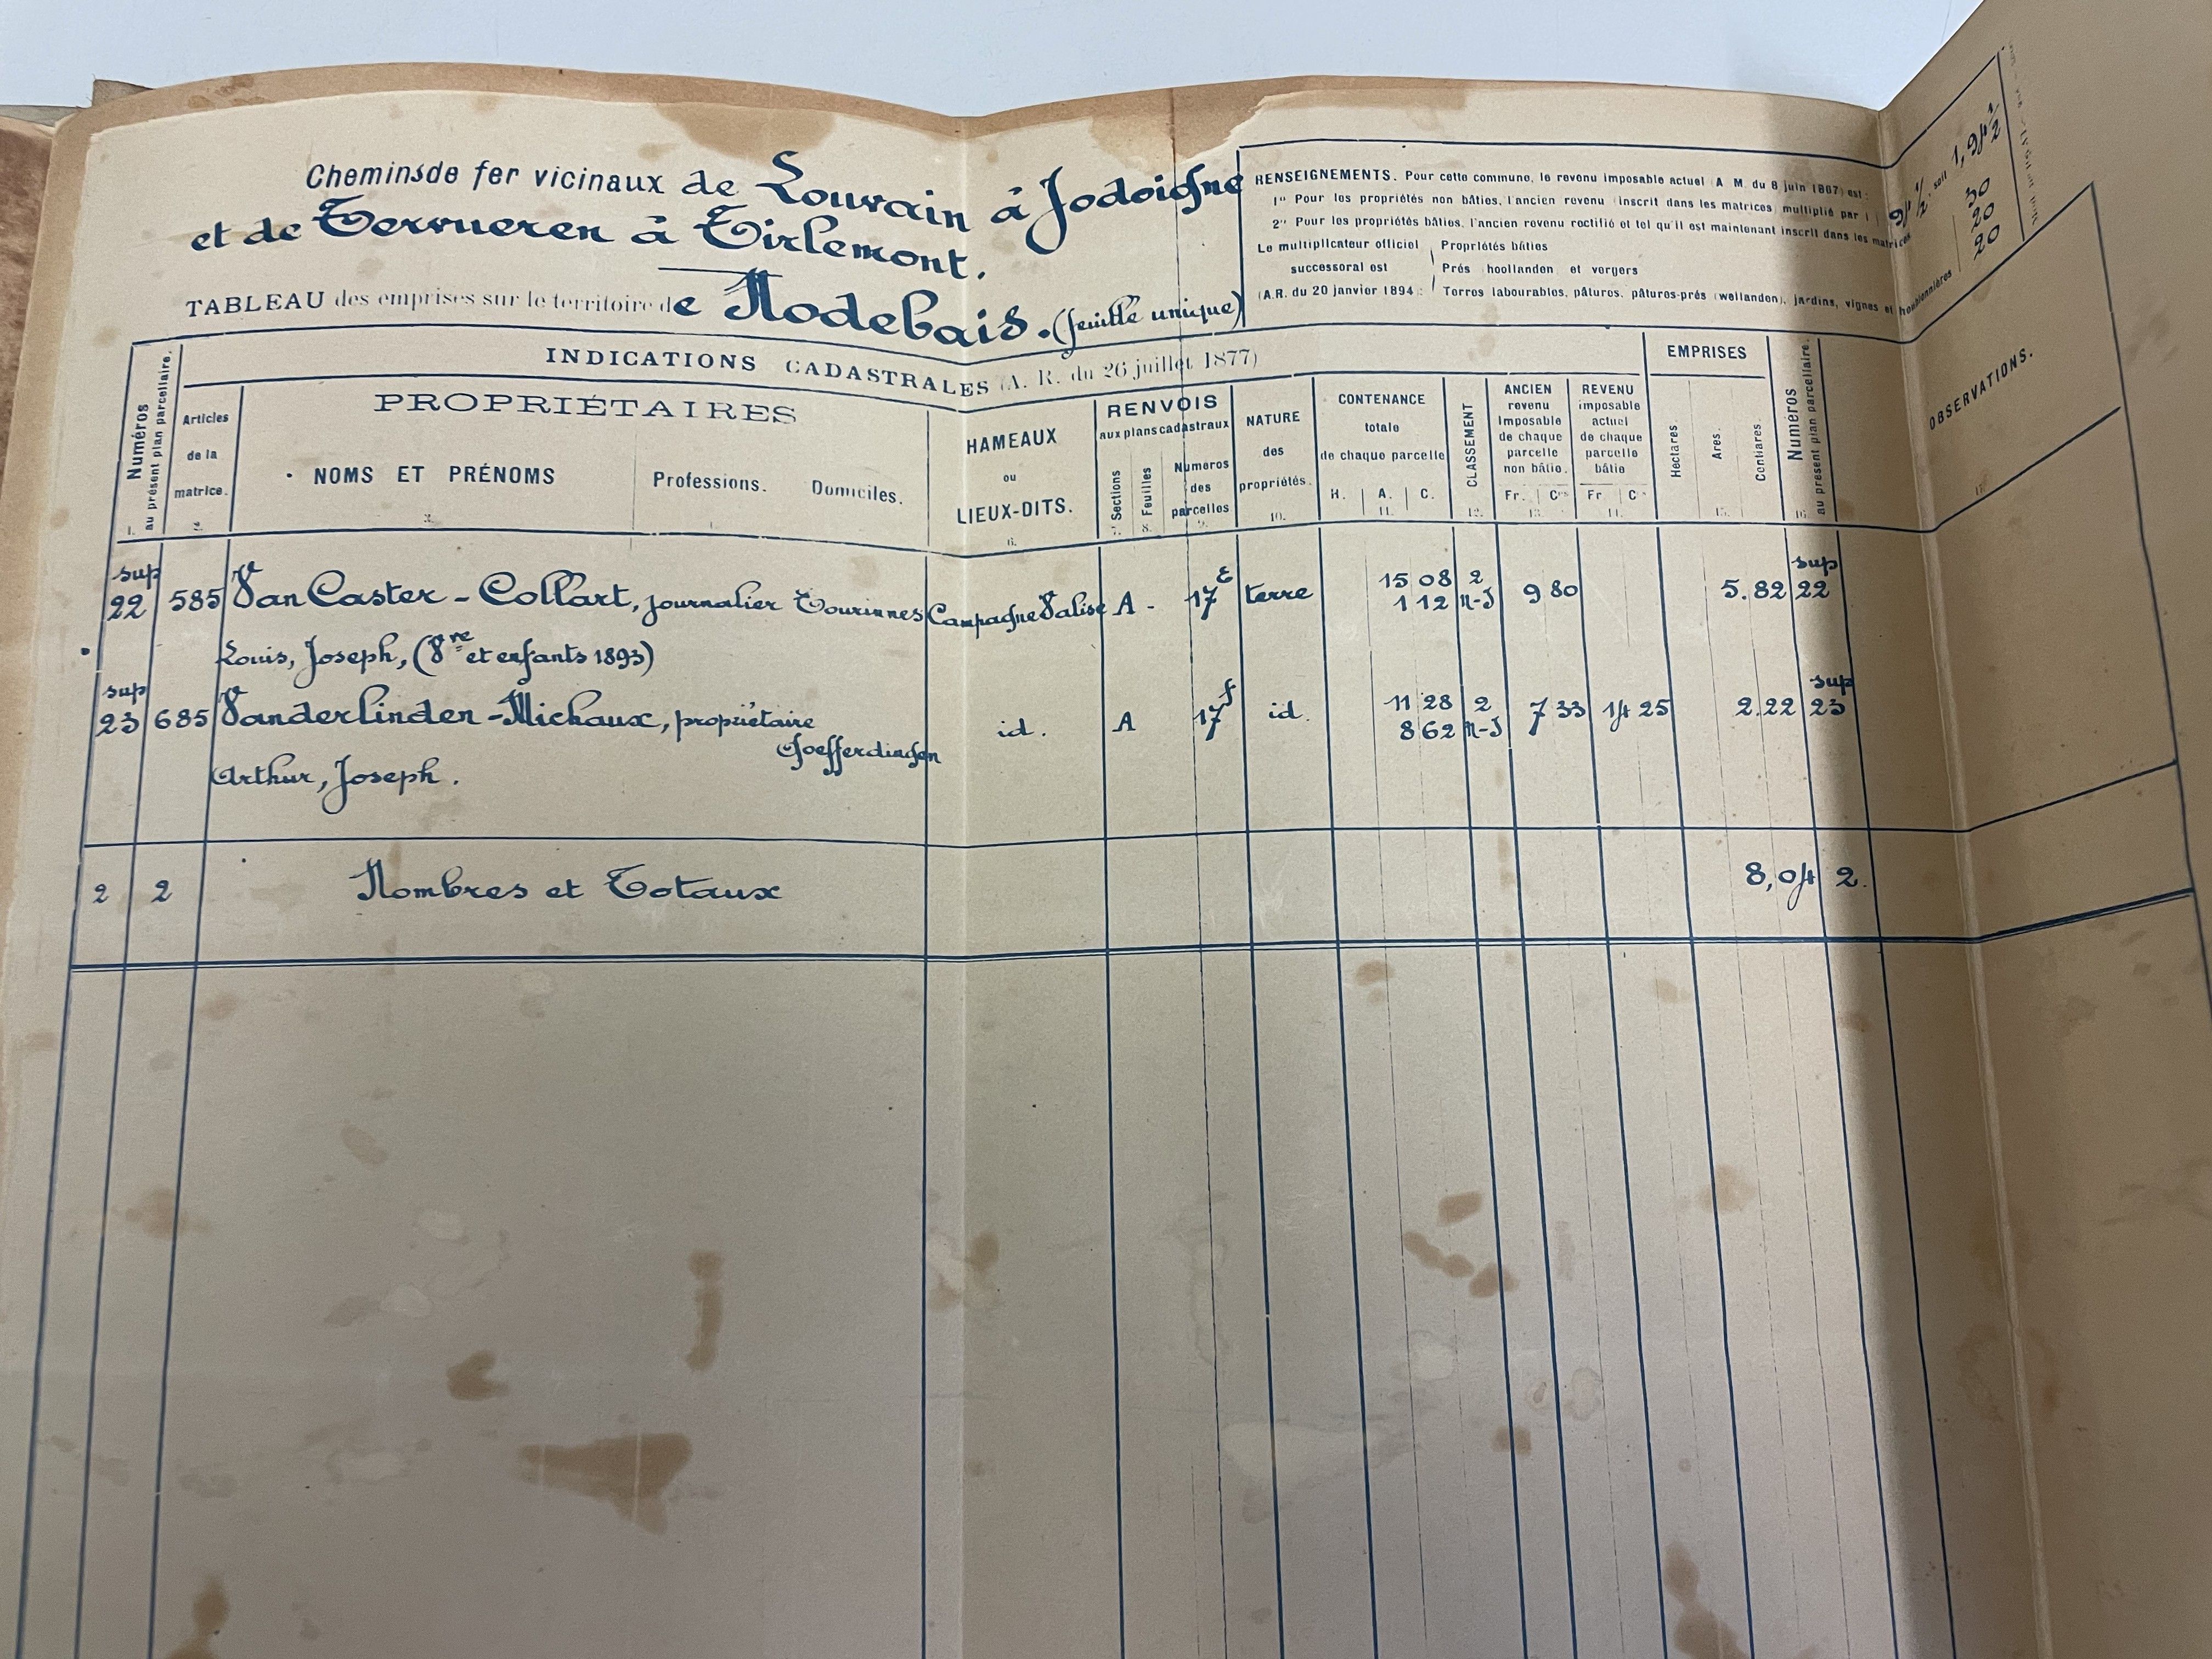 Chemins de fer vicinaux de Louvain à Jodoigne
et de Tervueren à Tirlemont.
TABLEAU des emprises sur le territoire de Nodebais. (feuille unique)
RENSEIGNEMENTS. Pour cette commune, le revenu imposable actuel (A. M. du 8 juin 1867) est :
1° Pour les propriétés non bâties, l'ancien revenu (inscrit dans les matrices) multiplié par soit 1,94 1/2
2° Pour les propriétés bâties, l'ancien revenu rectifié et tel qu'il est maintenant inscrit dans les matrices
Le multiplicateur officiel Propriétés bâties 30
successoral est Prés hooilanden et vergers 20
(A.R. du 20 janvier 1894 : Terres labourables, pâtures, pâtures-prés (weilanden), jardins, vignes et houblonnières 20
INDICATIONS CADASTRALES (A. R. du 26 juillet 1877)
EMPRISES
Numéros au présent plan parcellaire.
Articles de la matrice.
PROPRIÉTAIRES
NOMS ET PRÉNOMS Professions. Domiciles.
HAMEAUX ou LIEUX-DITS.
RENVOIS aux plans cadastraux
Sections Feuilles Numéros des parcelles
NATURE des propriétés.
CONTENANCE totale de chaque parcelle
H. A. C.
CLASSEMENT
ANCIEN revenu imposable de chaque parcelle non bâtie.
Fr. Ces
REVENU imposable actuel de chaque parcelle bâtie
Fr Cs
Hectares. Ares. Centiares.
Numéros au présent plan parcellaire.
OBSERVATIONS.
1. 2. 3. 6. 7. 8. 9. 10. 11. 12. 13. 14. 15. 16.
sup sup
22 585 Van Caster - Collart, journalier Tourinnes Campagne Valise A - 17E terre 15 08 2 9 80 5.82 22
1 12 n-J
Louis, Joseph, (Vve et enfants 1893)
sup sup
23 685 Vanderlinden - Michaux, propriétaire id. A 17f id. 11 28 2 7 33 14 25 2.22 23
Goefferdingen 8 62 n-J
Arthur, Joseph.
2 2 Nombres et Totaux 8,04 2.